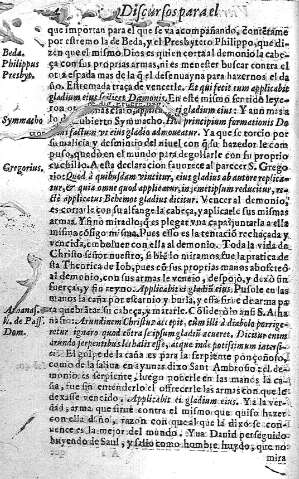 Discursos para el
que importan para el que se va acompañando, contétame
por estremo la de Beda, y el Presbytero Philippo, que di-
zen que el mismo Dios es quien corta al demonio la cabe-
ça con sus proprias armas, ni es menester buscar contra el
otra espada mas de la q̃ el desenuayna para hazernos el da
ño. Estremada traça de vencerle. Et qui fecit eum applicabit
gladium eius, scilicet Dæmonis. En este mismo sentido leye-
gladium eius: Y aun mas lo
Symmacho. Ipse principium formationis Do
mini factum ut eius gladio admoueatur. Ya que se torcio por
su malicia, y desminitio del niuel con q̃ su hazedor le com
puso, quedò en el mundo para degollarle con su proprio
cuchillo. A esta declaracion fauorece al parecer S. Grego-
rio: Quod à quibusdam vincitur, eius gladius ab autore replica-
tur, & quia omne quod applicatur, in semetipsum reducitur, re-
ctè applicatus Behemot gladius dicitur. Vencer al demonio,
es cortarle con su alfange la cabeça, y aplicarle sus mismas
armas. Y si no miradlo, q̃ es plegar vna capa, juntarla a ella
misma cõsigo misma. Pues esso es la tentaciõ rechaçada y
vencida, emboluer con ella al demonio. Toda la vida de
Christo señor nuestro, si biẽ lo miramos, fue la pratica de
esta Theorica de Iob, pues cõ sus proprias manos abofeteò
al demonio, con sus armas le vencio, despojò, y dexò sin
fuerças, y sin reyno. Applicabit et gladium eius. Pusole en las
manos la caña por escarnio y burla, y essa fue de arma pa
ra quebrarle su cabeça, y matarle. Cõsideròlo ansi S. Atha
nasio: Arundinem Christus accepit, cum illi à diabolo porrige-
retur ignaro quod contra se ipsum gladiũ acueret. Dicitur enim
arundo serpentibus lethalis esse, atque inde potissimum interfi-
ci. El golpe de la caña es para la serpiente ponçoñoso,
como de la saliua en ayunas dixo Sant Ambrosio: el de-
monio es serpiente, luego ponerle en las manos la ca-
ña, fue sin entenderlo el ofrecerle las armas con que le
dexasse vencido. Applicabit et gladium eius. Y a la ver-
dad, arma que sirue contra el mismo que quiso hazer
con ella daño, razon con que al que la dixo se con-
uence es la mejor del mundo. Yua Dauid perseguido
huyendo de Saul, y salio como hombre huydo, que no
mira
Beda.
Philippus
Presbyt.
Symmacho
Gregorius.
Athanas.
li. de Pass.
Dom.